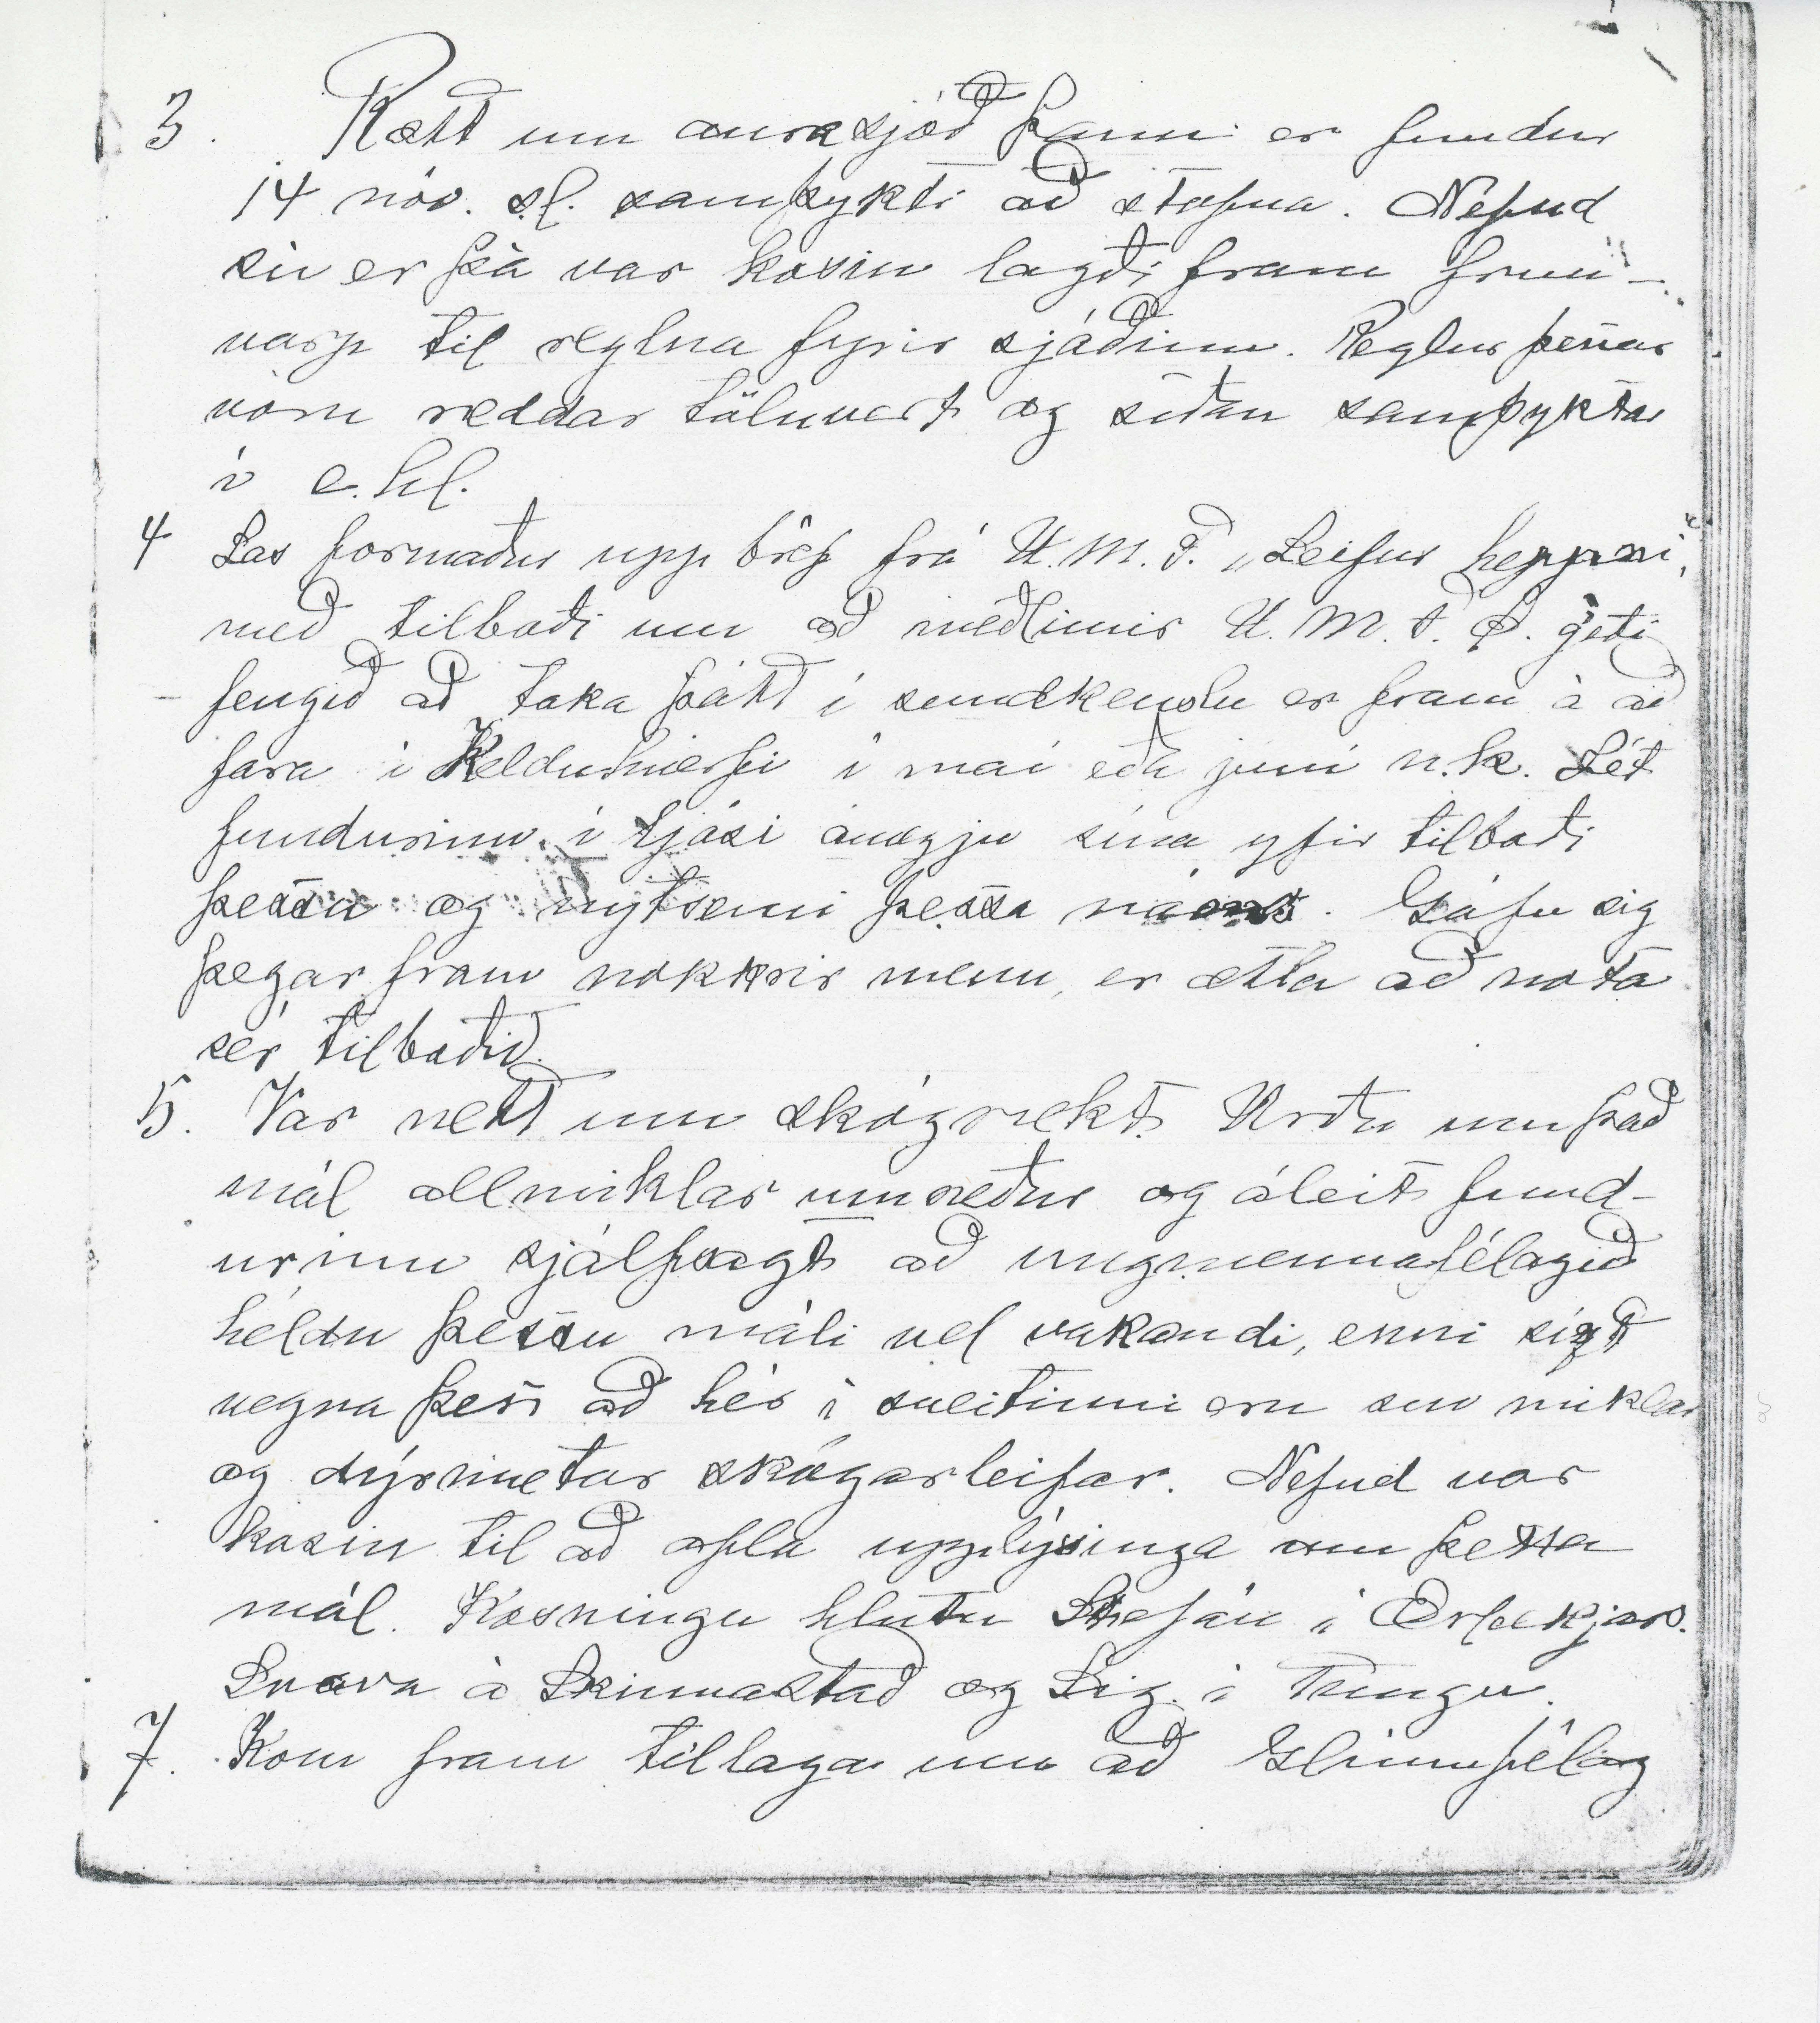 3. Rætt um aurasjóð þann er fundur
14 nóv. s.l. samþykti að stofna. Nefnd
sú er þá var kosin lagði fram frum-
varp til reglna fyrir sjóðinn. Reglur þessar
vóru ræddar töluvert og síðan samþyktar
í e. hl.
4 Las formaður upp bréf frá U.M.F. „Leifur heppni“,
með tilboði um að meðlimir U.M.F.Ö. geti
fengið að taka þátt í sundkenslu er fram á að
fara í Kelduhverfi í maí eða júní n.k. Lét
fundurinn í ljósi ánægju sína yfir tilboði
þessu og nytsemi þessa náms. Gáfu sig
þegar fram nokkrir menn, er ætla að nota
sér tilboðið.
5. Var rætt um skógrækt. Urðu um það
mál allmiklar umræður og áleit fund-
urinn sjálfsagt að ungmennafélagið
héldu þessu máli vel vakandi, enni sízt
vegna þess að hér í sveitinni eru svo miklar
og dýrmætar skógarleifar. Nefnd var
kosin til að afla upplýsinga um þetta
mál. Kosningu hlutu Stefán í Ærlækjars.
Snava á Skinnastað og Sig. í Tungu.
7. Kom fram tillaga um að Glímufélag